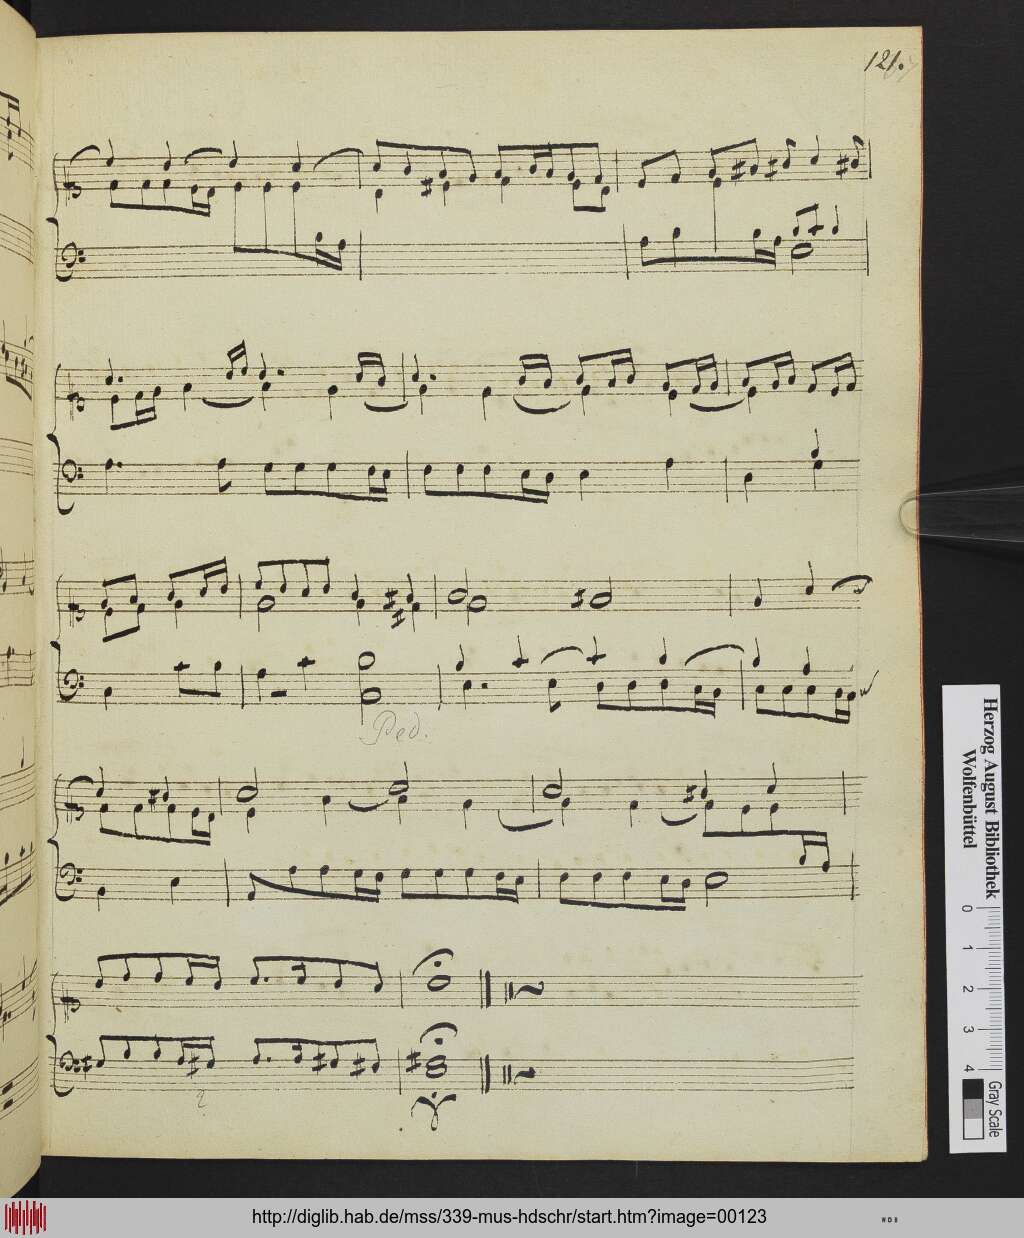 121.
Ped.
Herzog August Bibliothek
Wolfenbüttel
0 1 2 3 4
Gray Scale
http://diglib.hab.de/mss/339-mus-hdschr/start.htm?image=00123